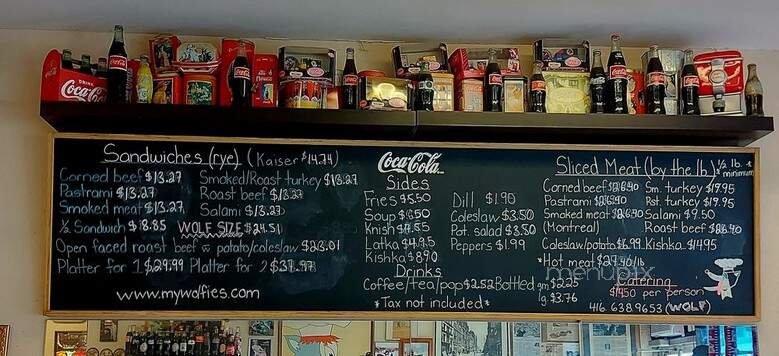 DRINK
Coca-Cola
Sandwiches (rye) (Kaiser $14.74)
Corned beef $13.27
Smoked/Roast turkey $13.27
Pastrami $13.27
Roast beef $13.27
Smoked meat $13.27
Salami $13.27
½ Sandwich $8.85
WOLF SIZE $24.51
Open faced roast beef w potato/coleslaw
Platter for 1 $29.99
Platter for 2 $37.97
www.mywolfies.com
Coca-Cola
Sides
Fries $5.50
Soup
Knish
Latka $4.95
Kishka $8.90
Dill $1.90
Coleslaw $3.50
Pot. salad $3.50
Peppers $1.99
Drinks
Coffee/tea/pop $2.52
Bottled gm $2.25
lg. $3.76
*Tax not included*
Sliced Meat (by the lb.) ½ lb. * minimum
Corned beef
Pastrami
Smoked meat
(Montreal)
Coleslaw/potato $6.99
*Hot meat
Sm. turkey $19.95
Rst. turkey $19.95
Salami $9.50
Roast beef
Kishka $14.95
menupix
Catering
$14.50 per person
416 638.9653 (WOLF)